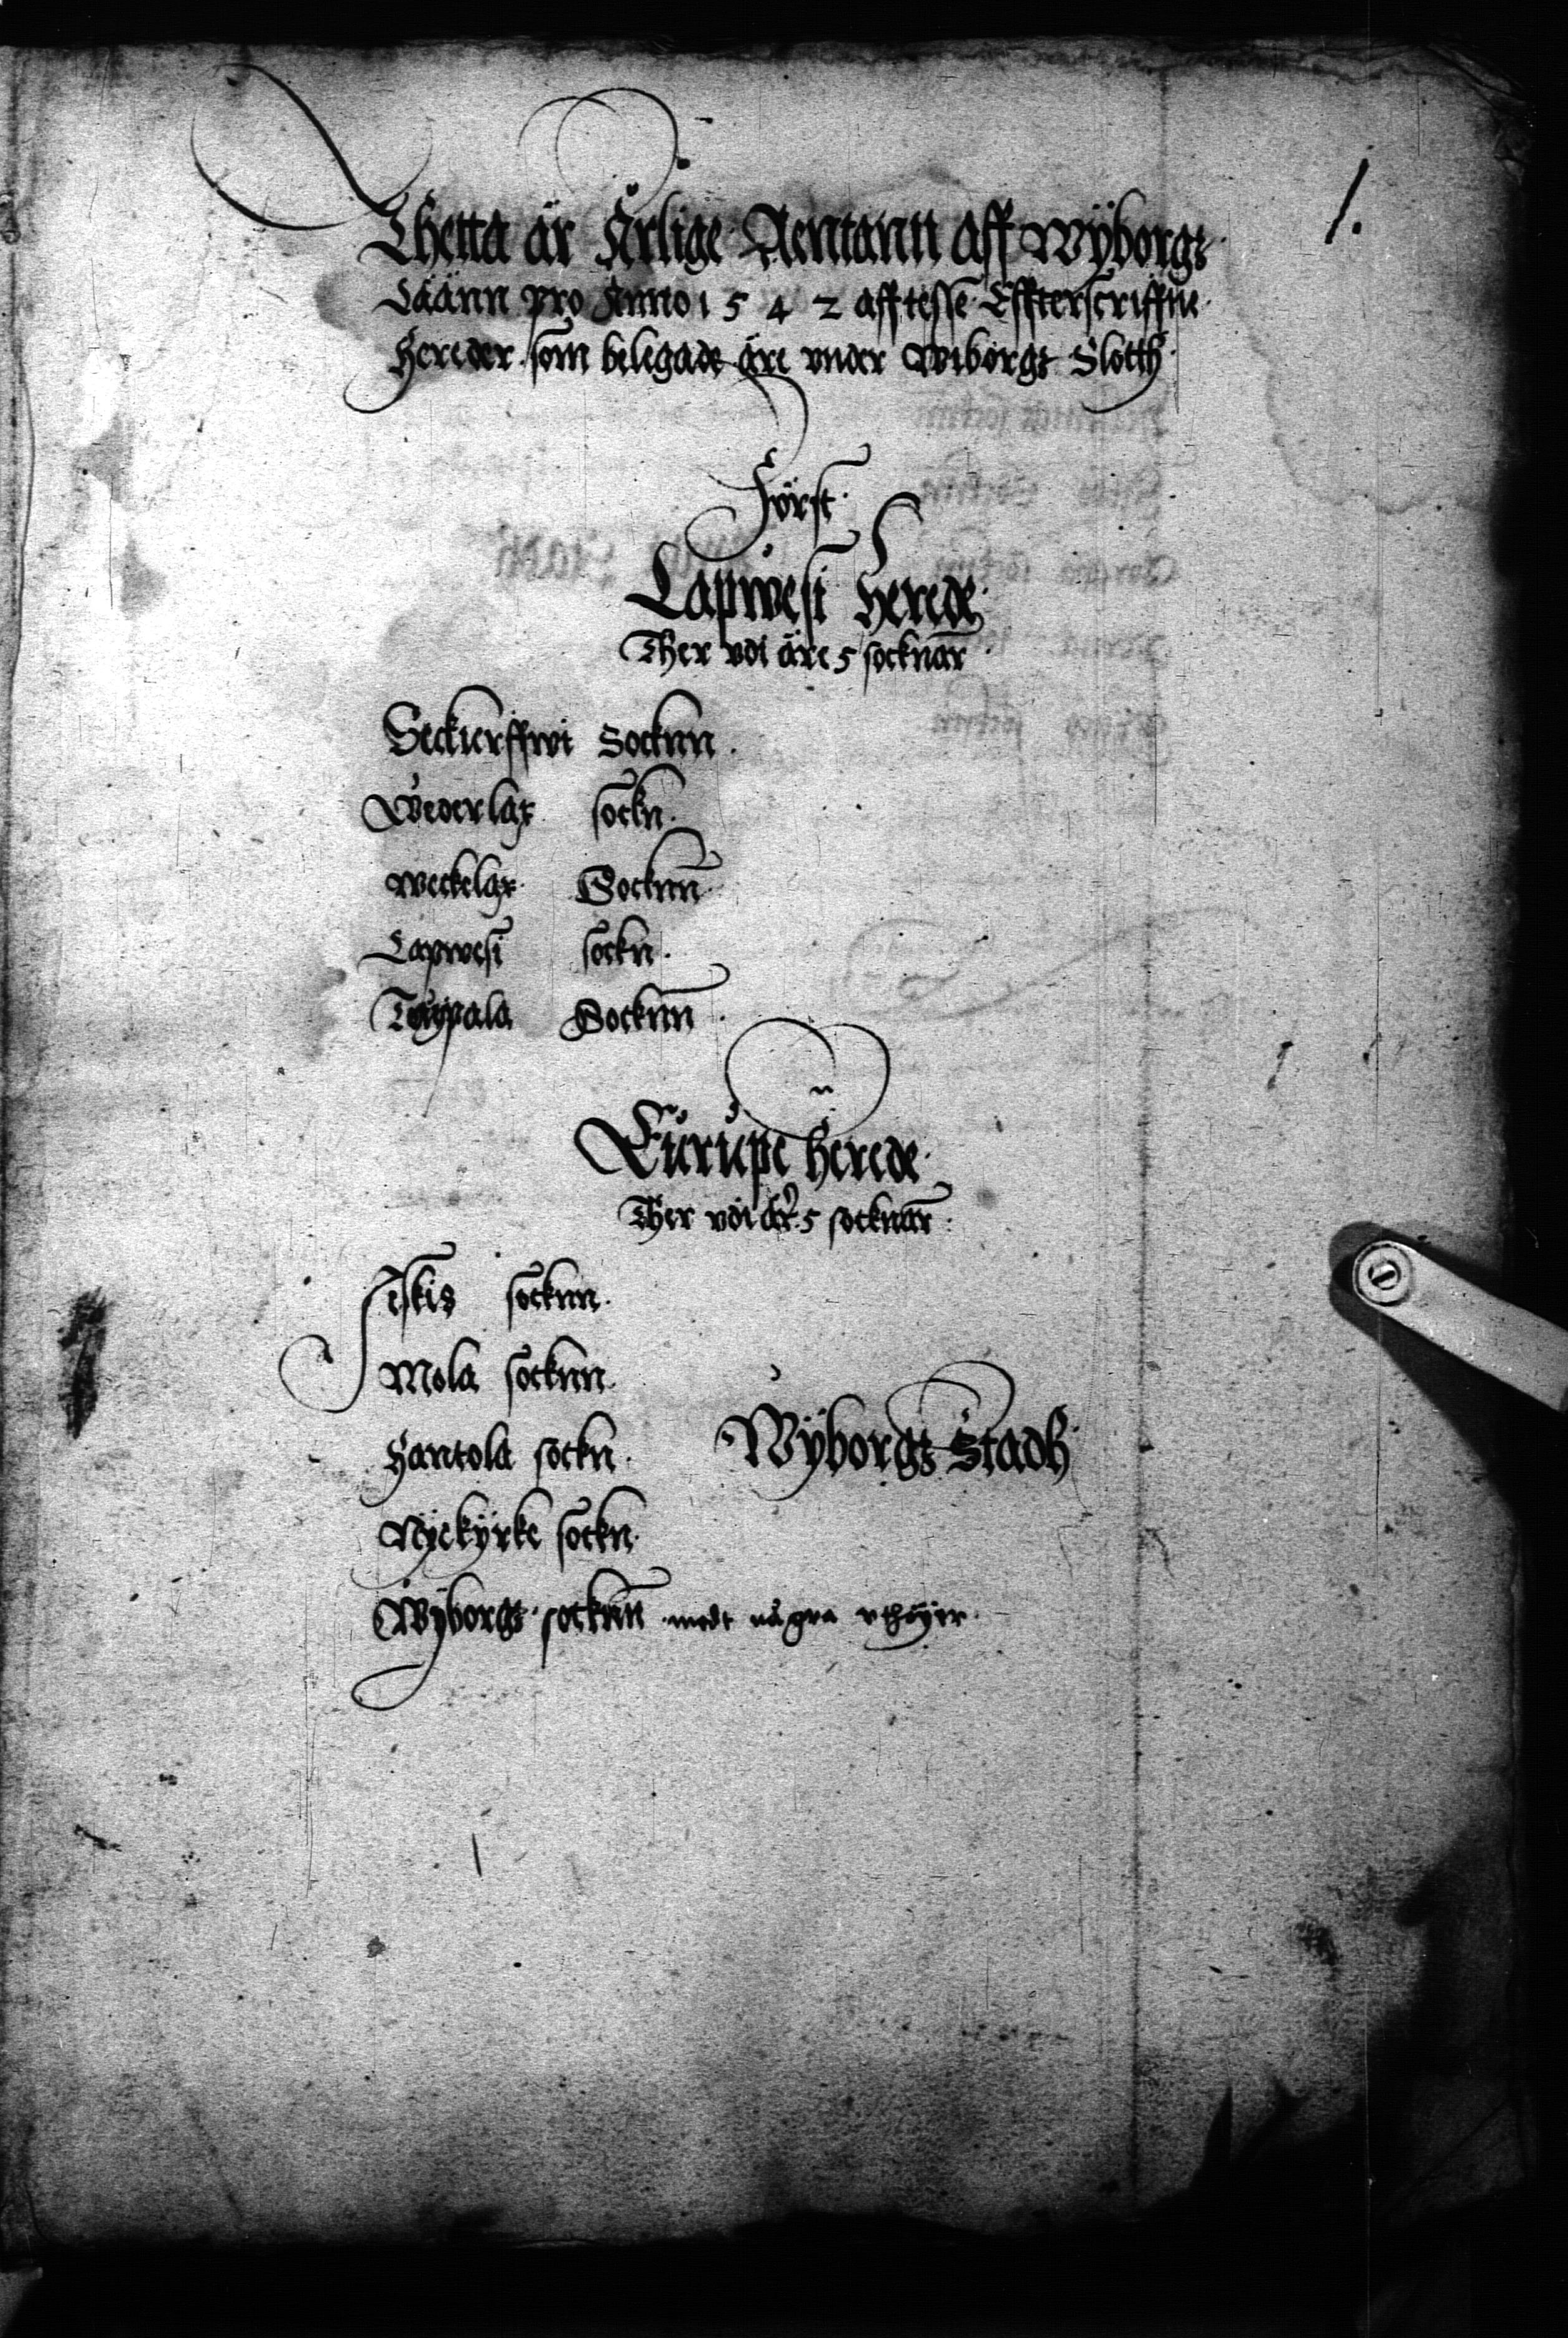 1.
Thetta är Årlige Renntann aff Wÿborgs
Läänn pro Anno 1542 aff tesse Effterscriffne
Hereder som belegade äre vnder Wiborgs Slotth
Först
Lapwesi Herede
Ther vdi äre 5 socknar
Seckierffwi Socknn
Wederlax sockn
Weckelax Socknn
Lapwesi sockn
Taÿpala Socknn
Eŭrŭpe Herede
Ther vdi är 5 socknar
Eskis socknn
Mola socknn
Hantola sockn
Wÿborgs Stadh
Nÿekÿrke sockn
Wÿborgs socknn medt några vthöÿer